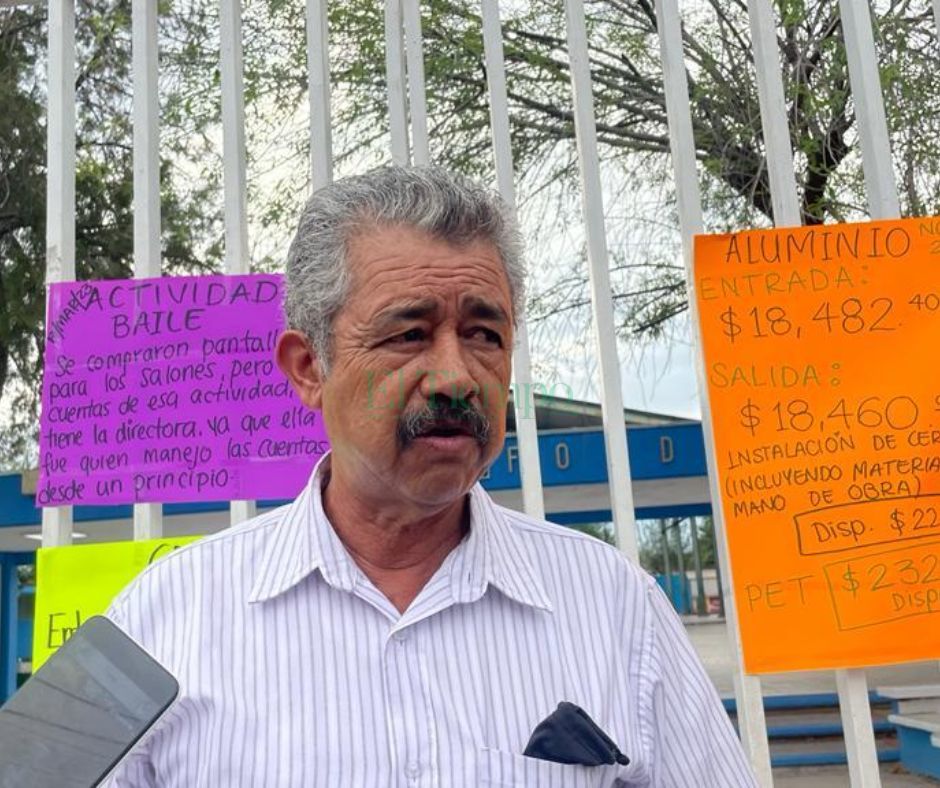 11/MARZO/23
ACTIVIDAD
BAILE
Se compraron pantall
para los salones, pero
cuentas de esa actividad,
tiene la directora. ya que ella
fue quien manejo las cuentas
desde un principio
El Tiempo
FO D
ALUMINIO
ENTRADA:
$18,482.40
SALIDA:
$18,460
INSTALACIÓN DE CER
(INCLUYENDO MATERIA
MANO DE OBRA)
Disp. $22
PET $232
DISP